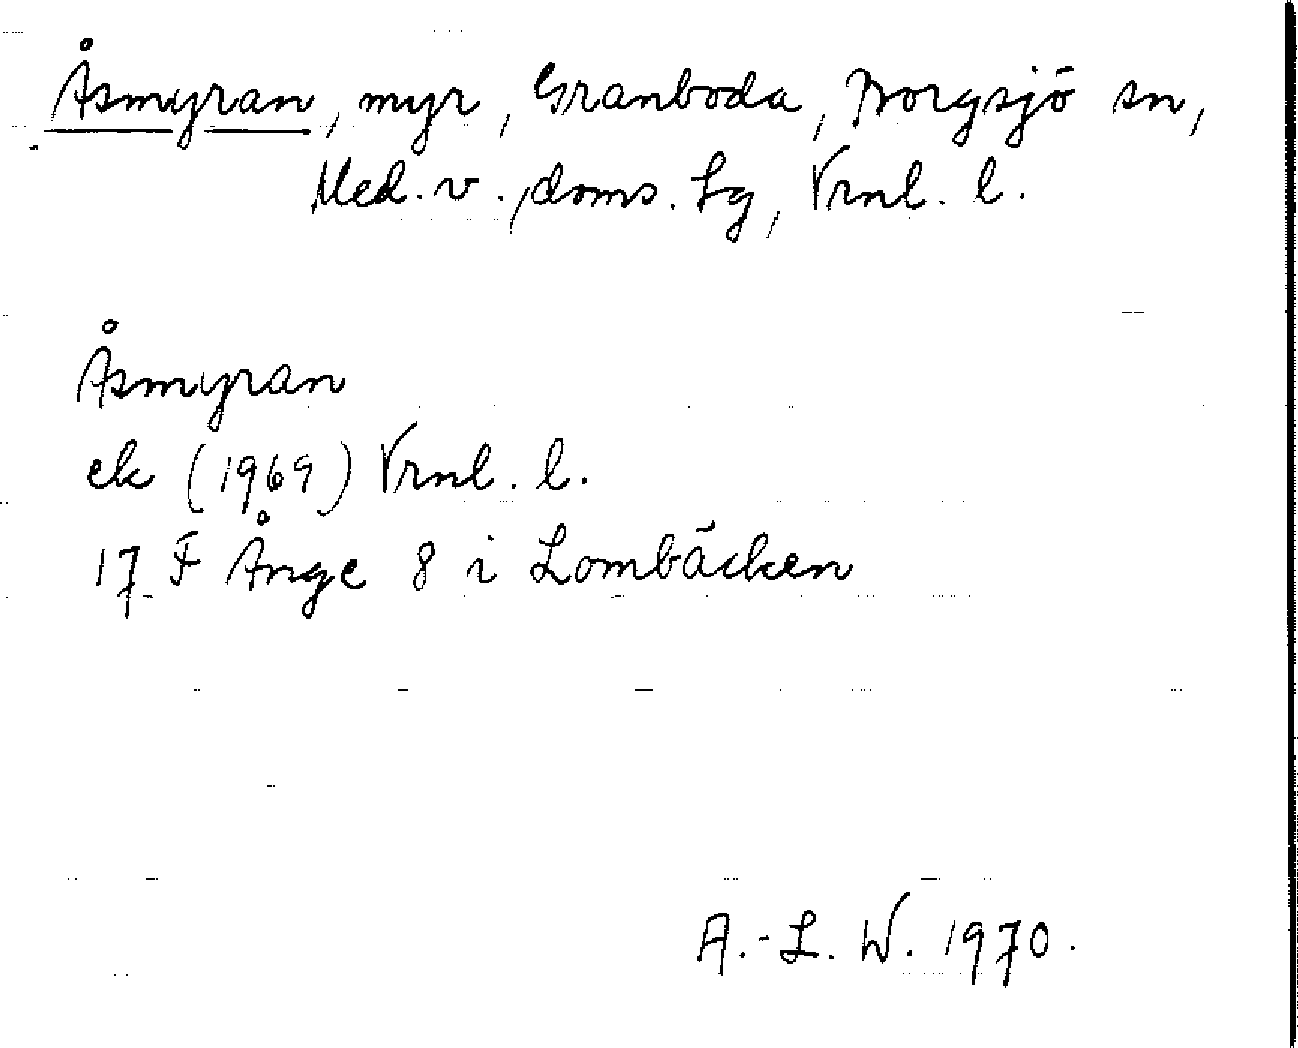 Åsmyran, myr, Granboda, Borgsjö sn,
Med. v., doms. Lg, Vrnl. l.
Åsmyran
ek (1969) Vrnl. l.
17 F Ånge 8 i Lombäcken
A.-L. W. 1970.